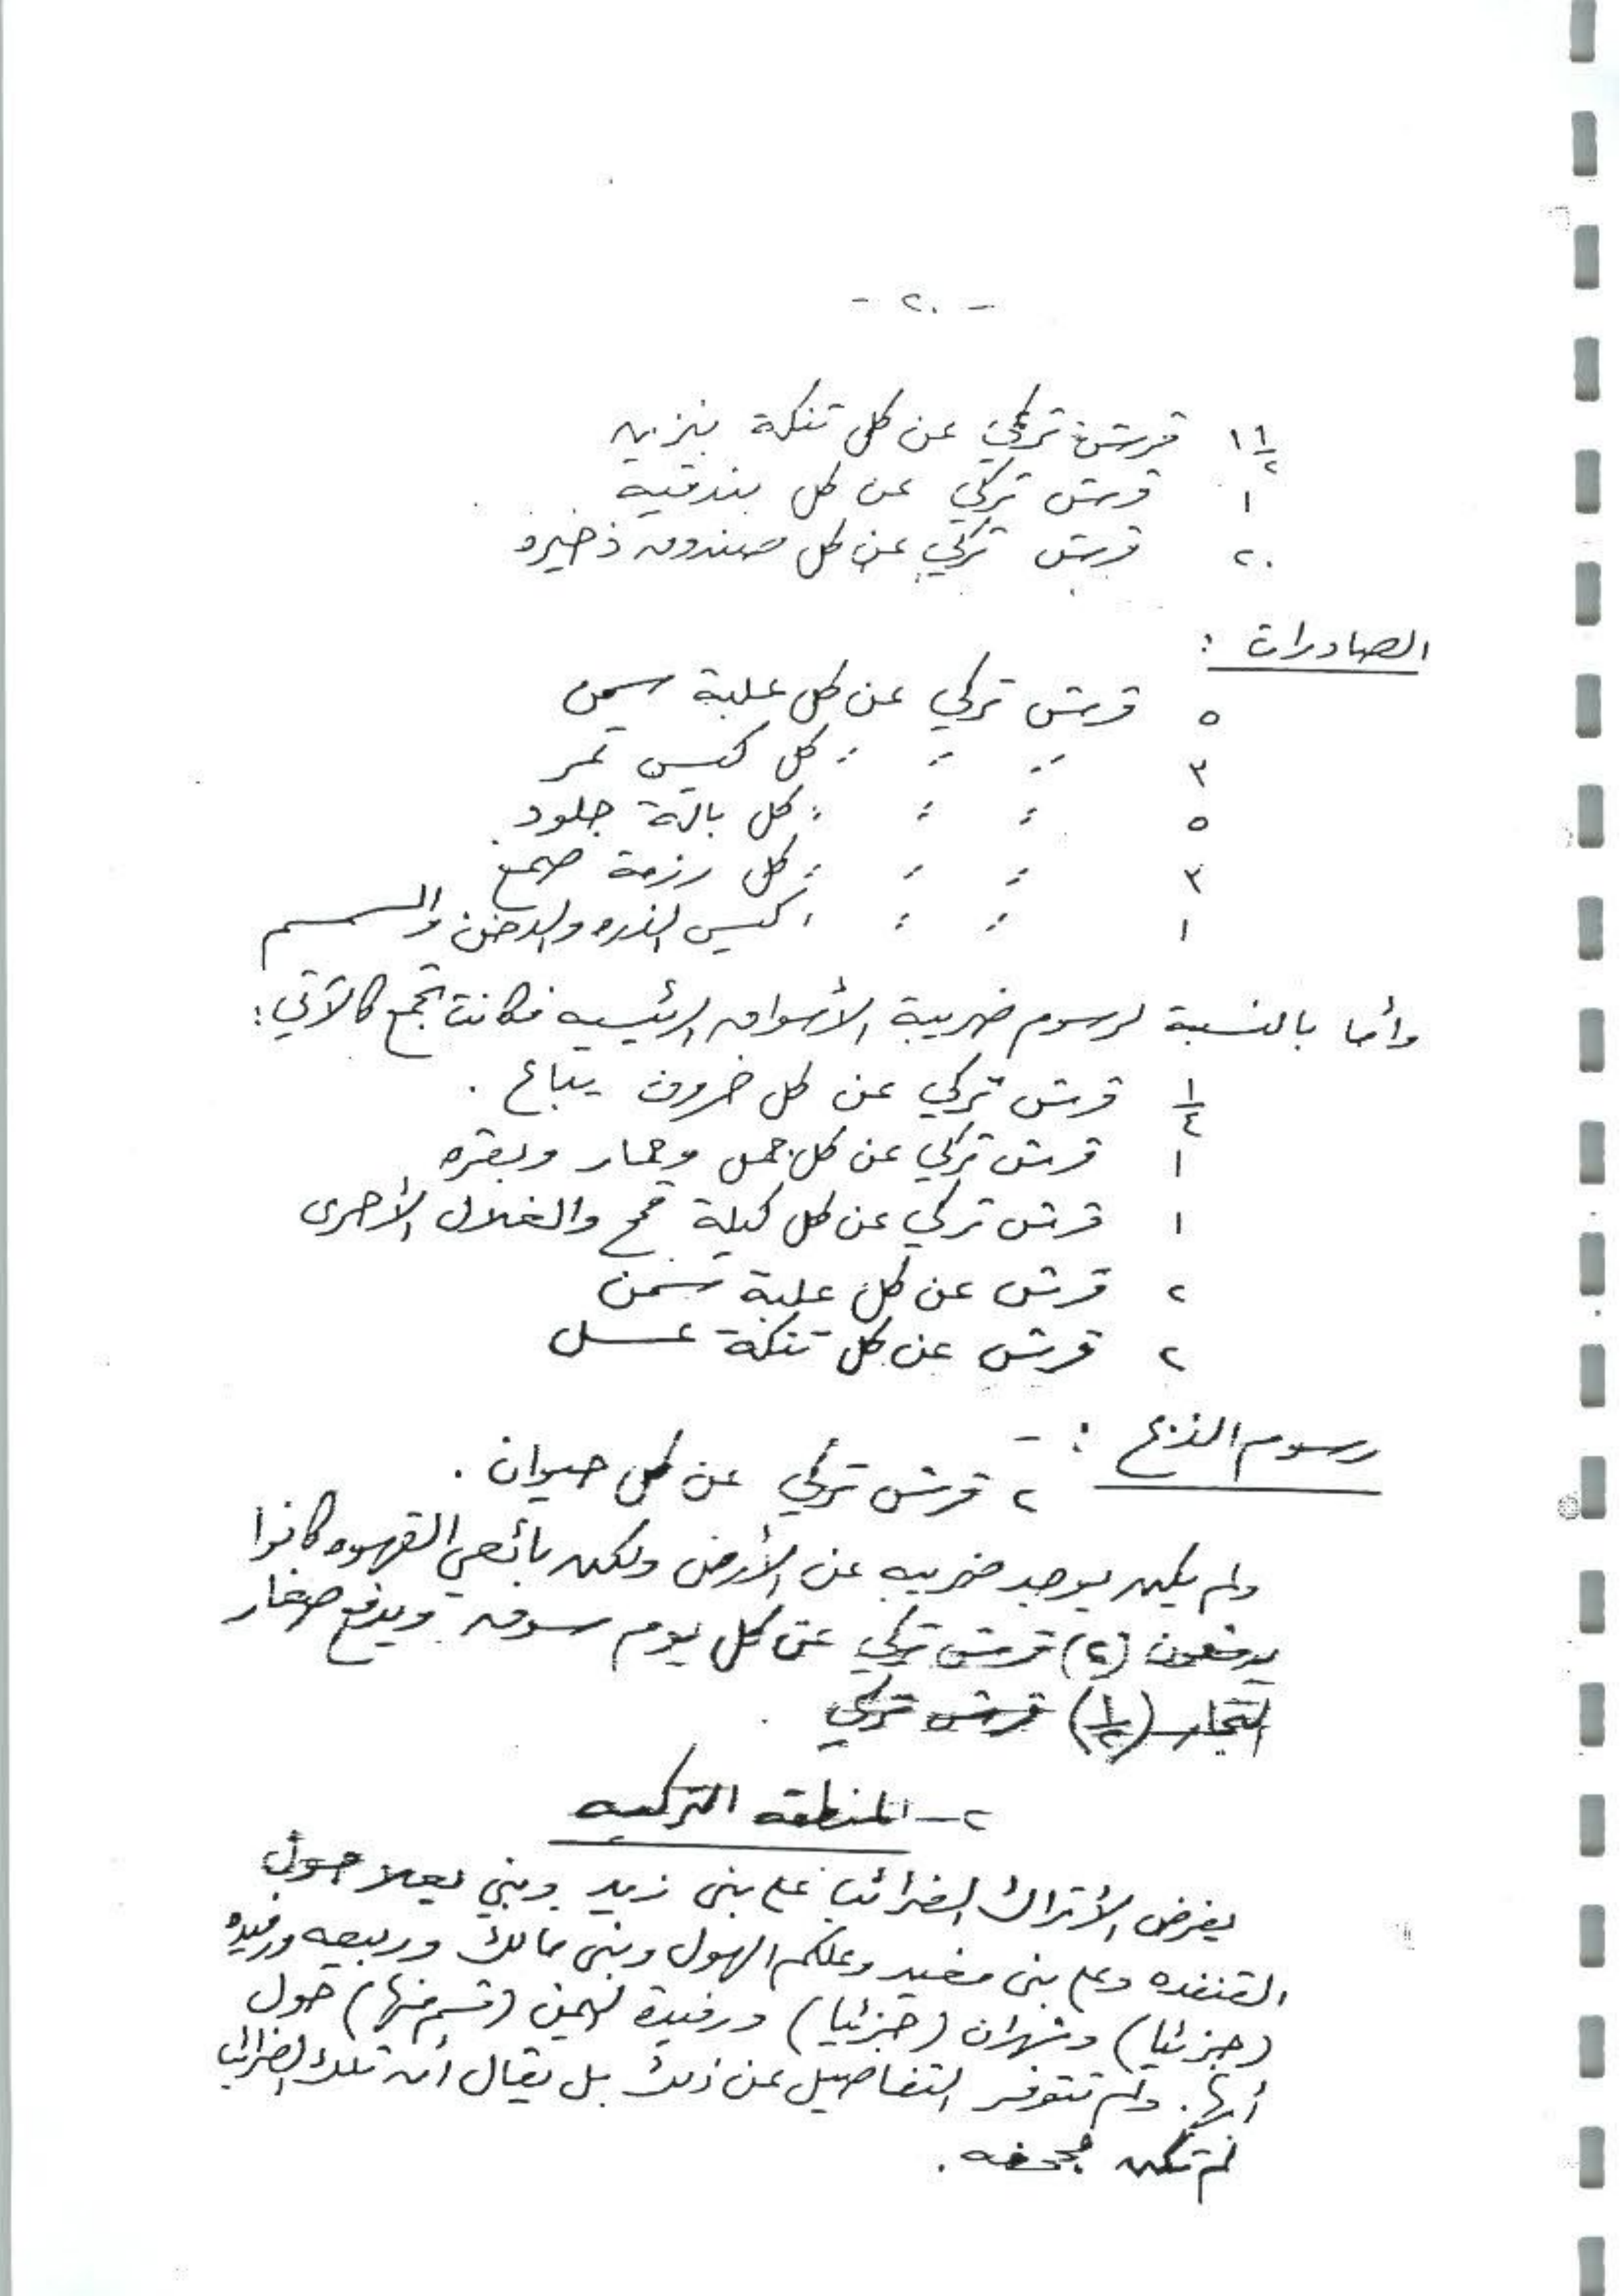 - ٢٠ -
١ ١/٢ قرش تركي عن كل تنكة بنزين
١ قرش تركي عن كل بندقيه
٢٠ قرش تركي عن كل صندوق ذخيره
الصادرات :
٥ قرش تركي عن كل علبة سمن
٣ " " " كل كيس تمر
٥ " " " كل بالة جلود
٣ " " " كل رزمة صمغ
١ " " " كيس الذره والدخن والسمسم
وأما بالنسبة لرسوم ضريبة الأسواق الرئيسيه فكانت تجمع كالآتي :
١/٤ قرش تركي عن كل خروف يباع .
١ قرش تركي عن كل جمل وحمار وبقره
١ قرش تركي عن كل كيلة قمح والغلال الأخرى
٢ قرش عن كل علبة سمن
٢ قرش عن كل تنكة عسل
رسوم الذبح : -
٢ قرش تركي عن كل حيوان .
ولم يكن يوجد ضريبه عن الأرض ولكن بائعي القهوه كانوا
يدفعون (٢) قرش تركي عن كل يوم سوق ويدفع صغار
التجار (١/٢) قرش تركي .
٢ - المنطقه التركيه
يفرض الأتراك الضرائب على بني زيد وبني يعلا حول
القنفده وعلى بني مغيد وعلكم الهول وبني مالك وربيعه ورفيده
(جزئيا) وشهران (جزئيا) ورفيدة اليمن (قسم منها) حول
أبها . ولم تتوفر التفاصيل عن ذلك بل يقال أن تلك الضرائب
لم تكن مجحفه .